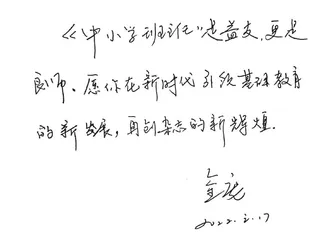 《中小学班主任》是益友,更是
良师、愿你在新时代引领基础教育
的新发展,再创杂志的新辉煌.
2022.2.17